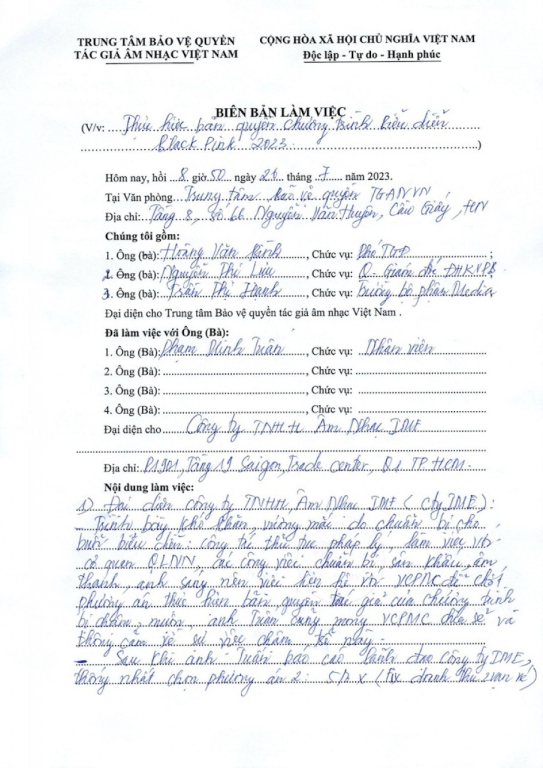 TRUNG TÂM BẢO VỆ QUYỀN
TÁC GIẢ ÂM NHẠC VIỆT NAM
CỘNG HÒA XÃ HỘI CHỦ NGHĨA VIỆT NAM
Độc lập - Tự do - Hạnh phúc
BIÊN BẢN LÀM VIỆC
(V/v: Thực hiện bản quyền chương trình biểu diễn
Black Pink 2023.)
Hôm nay, hồi 8 giờ 50 ngày 21 tháng 7 năm 2023.
Tại Văn phòng Trung tâm bảo vệ quyền TGANVN
Địa chỉ: Tầng 8, số 66 Nguyễn Văn Huyên, Cầu Giấy, HN
Chúng tôi gồm:
1. Ông (bà): Hoàng Văn Bình, Chức vụ: Phó TGĐ ;
2. Ông (bà): Nguyễn Thị Lưu, Chức vụ: Q. Giám đốc ;
3. Ông (bà): Trần Thị Hạnh, Chức vụ: Trưởng bộ phận Media
Đại diện cho Trung tâm Bảo vệ quyền tác giả âm nhạc Việt Nam .
Đã làm việc với Ông (Bà):
1. Ông (Bà): Phạm Minh Tuân, Chức vụ: Nhân viên
2. Ông (Bà): , Chức vụ:
3. Ông (Bà): , Chức vụ:
4. Ông (Bà): , Chức vụ:
Đại diện cho Công ty TNHH Âm Nhạc IME
Địa chỉ: P1901, Tầng 19 Saigon, Trade center, Q1 TP HCM
Nội dung làm việc:
1) Đại diện công ty TNHH Âm Nhạc IME (Cty IME):
- Trình bày khó khăn, vướng mắc do chuẩn bị cho
buổi biểu diễn: công tác thủ tục pháp lý, làm việc với
cơ quan QLNN, các công việc chuẩn bị, sân khấu, âm
thanh, ánh sáng nên việc liên hệ với VCPMC để chốt
phương án thực hiện bản quyền tác giả của chương trình
bị chậm, muộn, anh Tuân cũng mong VCPMC chia sẻ và
thông cảm về sự việc chậm trễ này.
- Sau khi anh Tuân báo cáo lãnh đạo công ty IME,
thống nhất chọn phương án 2: 5% x (fix doanh thu bán vé)